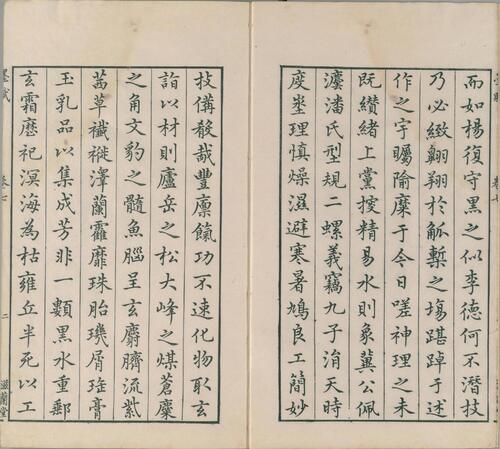 而如楊復守黑之似李德何不潛技
乃必緻翱翔於觚槧之塲踸踔于述
作之宇矚隃糜于今日嗟神理之未
既纘緒上黨挍精易水則象冀公佩
潘氏型規二螺義竊九子涓天時
埊理慎燥濕避寒暑鳩良工簡妙
技僃哉豐廪餼功不速化物取玄
詣以材則廬岳之松大峰之煤蒼麋
之角文豹之髓魚腦呈玄麝臍流紫
茜草襳褷澤蘭靃靡珠胎璣屑膏
玉乳品以集成芳非一類黑水重郵
玄霜歷祀溟海為枯雍丘半死以工
卷七
二
滋蘭堂